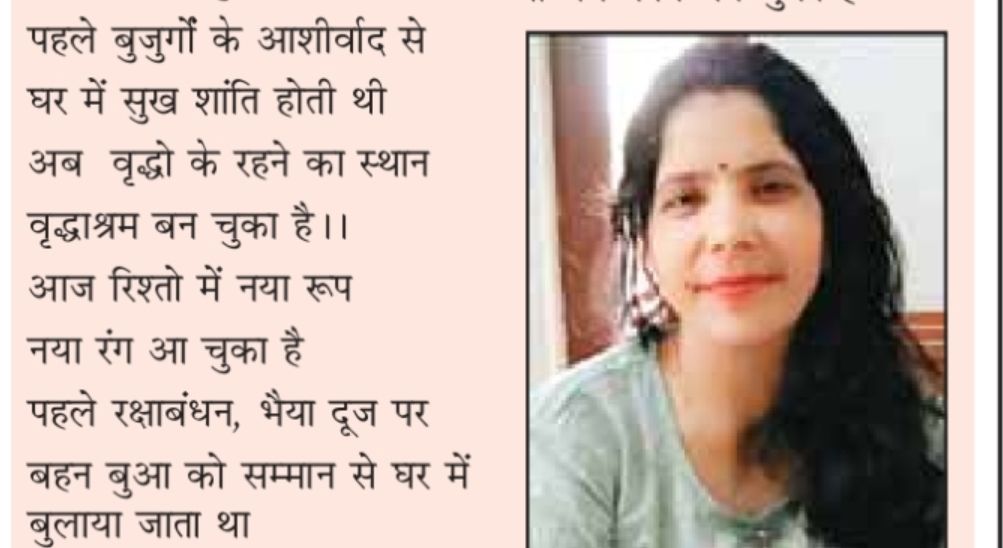 पहले बुजुर्गों के आशीर्वाद से
घर में सुख शांति होती थी
अब वृद्धो के रहने का स्थान
वृद्धाश्रम बन चुका है।।
आज रिश्तो में नया रूप
नया रंग आ चुका है
पहले रक्षाबंधन, भैया दूज पर
बहन बुआ को सम्मान से घर में
बुलाया जाता था